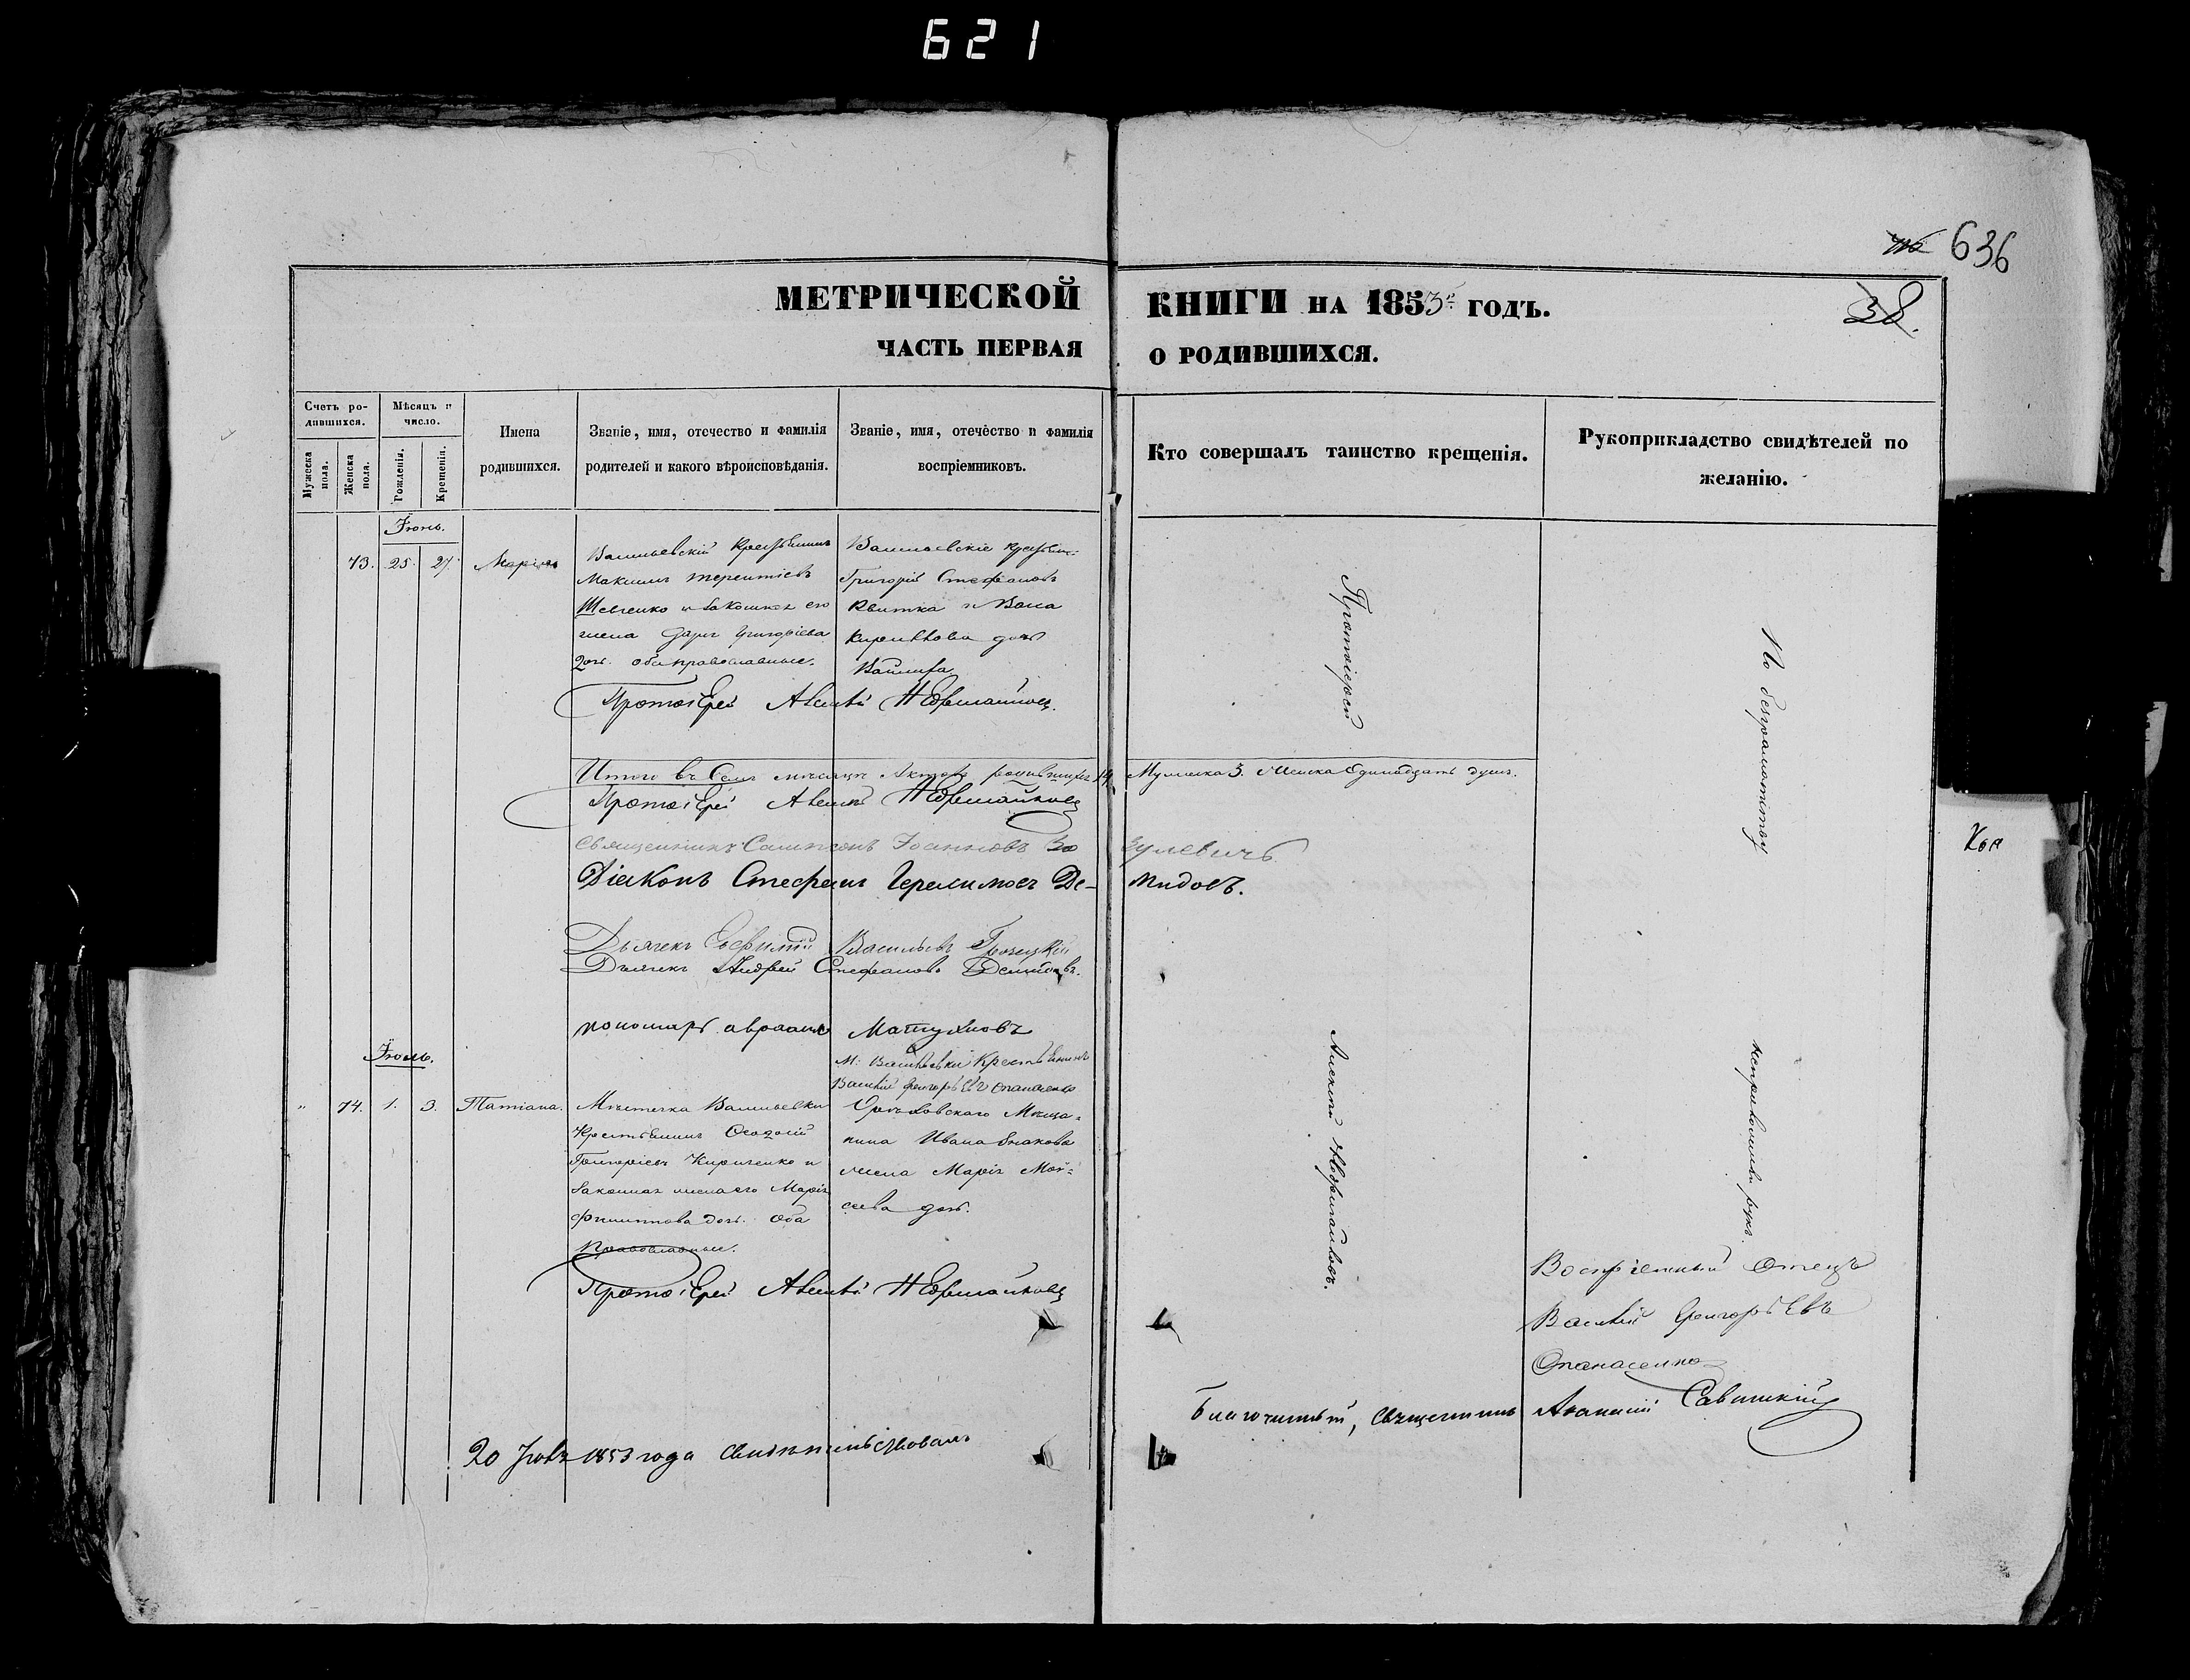 621
636
38.
МЕТРИЧЕСКОЙ КНИГИ НА 1853 ГОДЪ.
ЧАСТЬ ПЕРВАЯ О РОДИВШИХСЯ.
Счетъ родившихся.
Мужеска пола.
Женска пола.
Мѣсяцъ и число.
Рожденія.
Крещенія.
Имена родившихся.
Званіе, имя, отечество и фамилія
родителей и какого вѣроисповѣданія.
Званіе, имя, отечество и фамилія
воспріемниковъ.
Кто совершалъ таинство крещенія.
Рукоприкладство свидѣтелей по
желанію.
Іюнь.
73. 25. 27. Марія
Васильевскій Крестьянинъ
Максимъ Терентіевъ
Шевченко и законная его
жена Дарія Григоріева
доч. оба православные.
Васильевскіе крестьян:
Григорій Стефановъ
Квитка и
дочь
Протоіерей
Протоіерей
Итого въ мѣсяцѣ родившихся 14 Мужеска 3. Женска Одинадцать душъ.
Протоіерей
Священникъ Сампсонъ Іоанновъ Зо зулевичъ
Діаконъ Стефанъ Герасимовъ Де- мидовъ.
Дьячекъ Евфимій Васильевъ
Дьячекъ Андрей Стефановъ Демидовъ.
пономарь
Іюль.
" 74. 1. 3. Татіана.
Мѣстечка Васильевки
Крестьянинъ Феодосій
Григоріевъ Кириченко и
законная жена его Марія
Филиппова доч. оба
Православные.
М: Васильевки Крестьянинъ
Василій Григорьевъ Опанасенко
Орѣховскаго Мѣща-
нина Ивана
жена Марія Мой-
сеева доч.
Протоіерей
Алексѣй
По безграмотству
неприложили рукъ.
Воспріемный Отецъ
Василій Григорьевъ
Опанасенко
Благочинный, Священникъ Савицкій
20 1853 года свидѣтельствовалъ